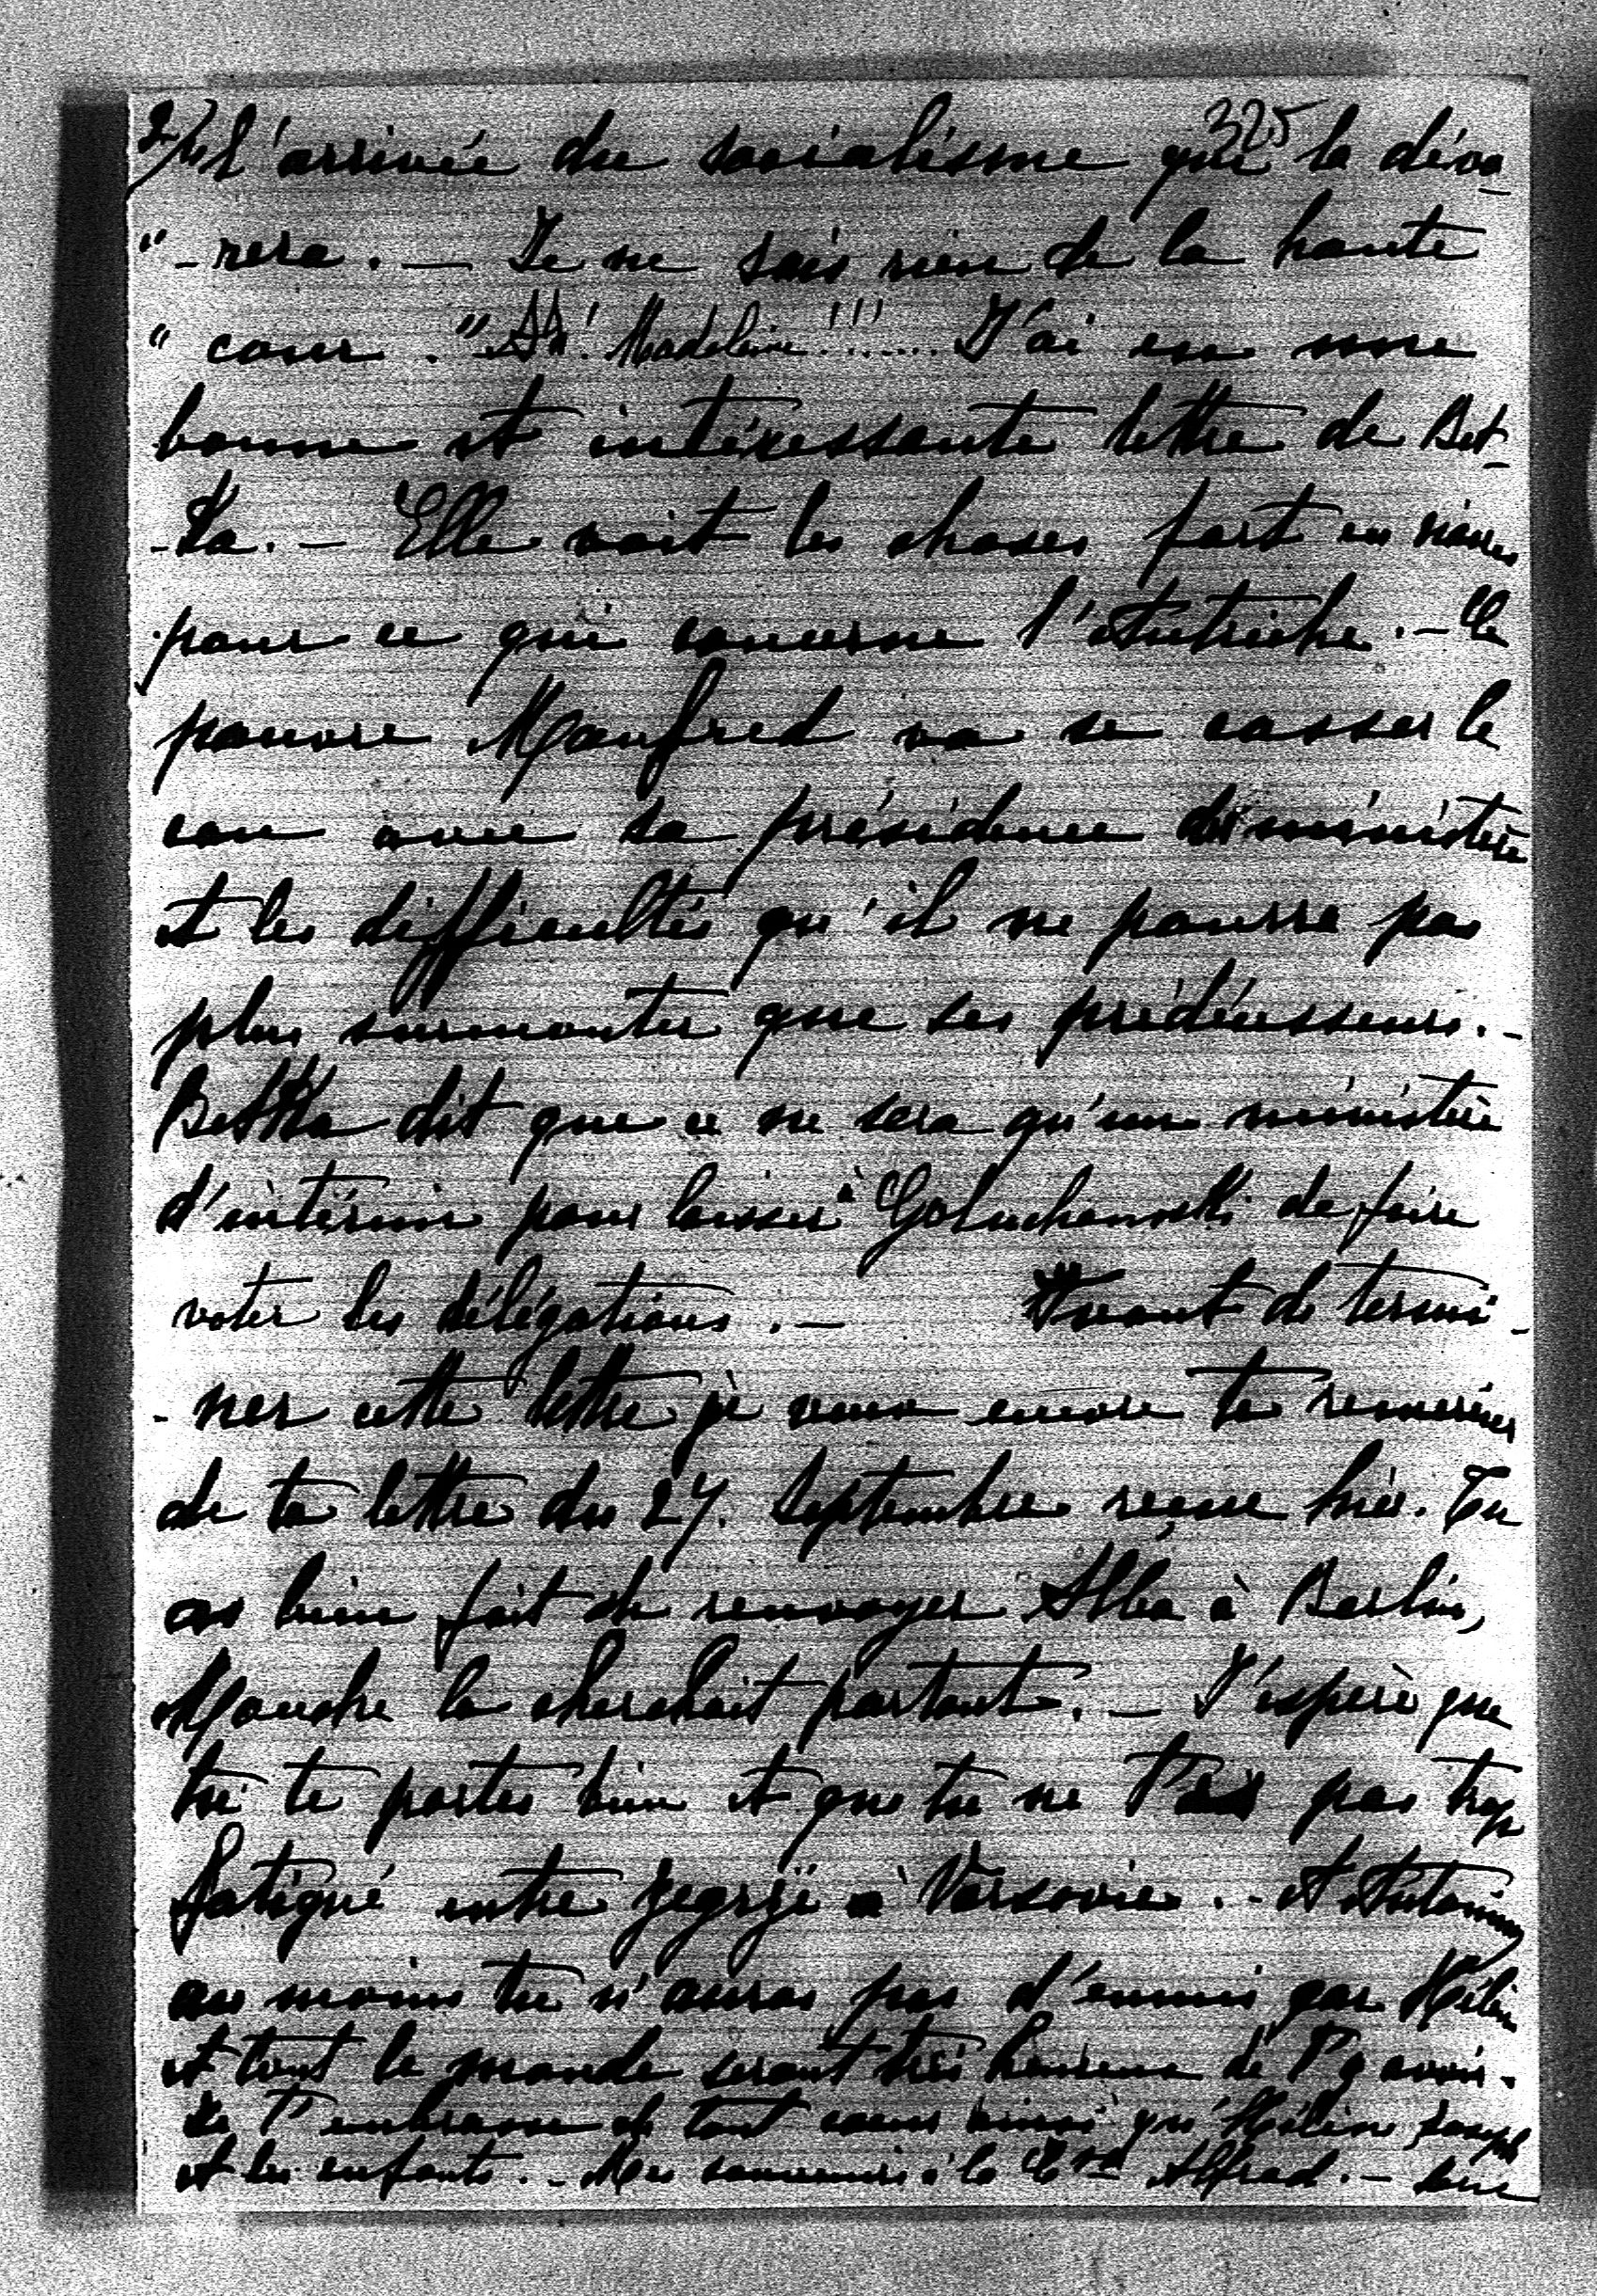 325
2/ l'arrivée du socialisme qui la dévo-
"-rera. — Je ne sais rien de la haute
"cour." Ah! Madeleine!!!....... J'ai eu une
bonne et intéressante lettre de Bet-
-Ka. — Elle voit les choses fort en noires
pour ce qui concerne l'Autriche. — Ce
pauvre Manfred va se casser le
cou avec sa présidence du ministère
et les difficultés qu'il ne pourra pas
plus surmonter que ses prédécesseurs. -
BetKa dit que ce ne sera qu'un ministère
d'intérim pour laisser à GoluchowsKi de faire
voter les délégations. — Avant de termi-
-ner cette lettre je veux encore te remercier
de ta lettre du 27. Septembre reçue hier. Tu
as bien fait de renvoyer Alba à Berlin,
Mouche la cherchait partout. — J'espère que
tu te portes bien et que tu ne t'es pas trop
fatigué entre Zegrze à Varsovie. - A Antonin
au moins tu n'auras pas d'ennuis car Hélène
et tout le monde seront très heureux de t'y avoir.
Je t'embrasse de tout coeur ainsi qu'Hélène, Joseph
et les enfants. - Mes souvenirs à la Alfred. —